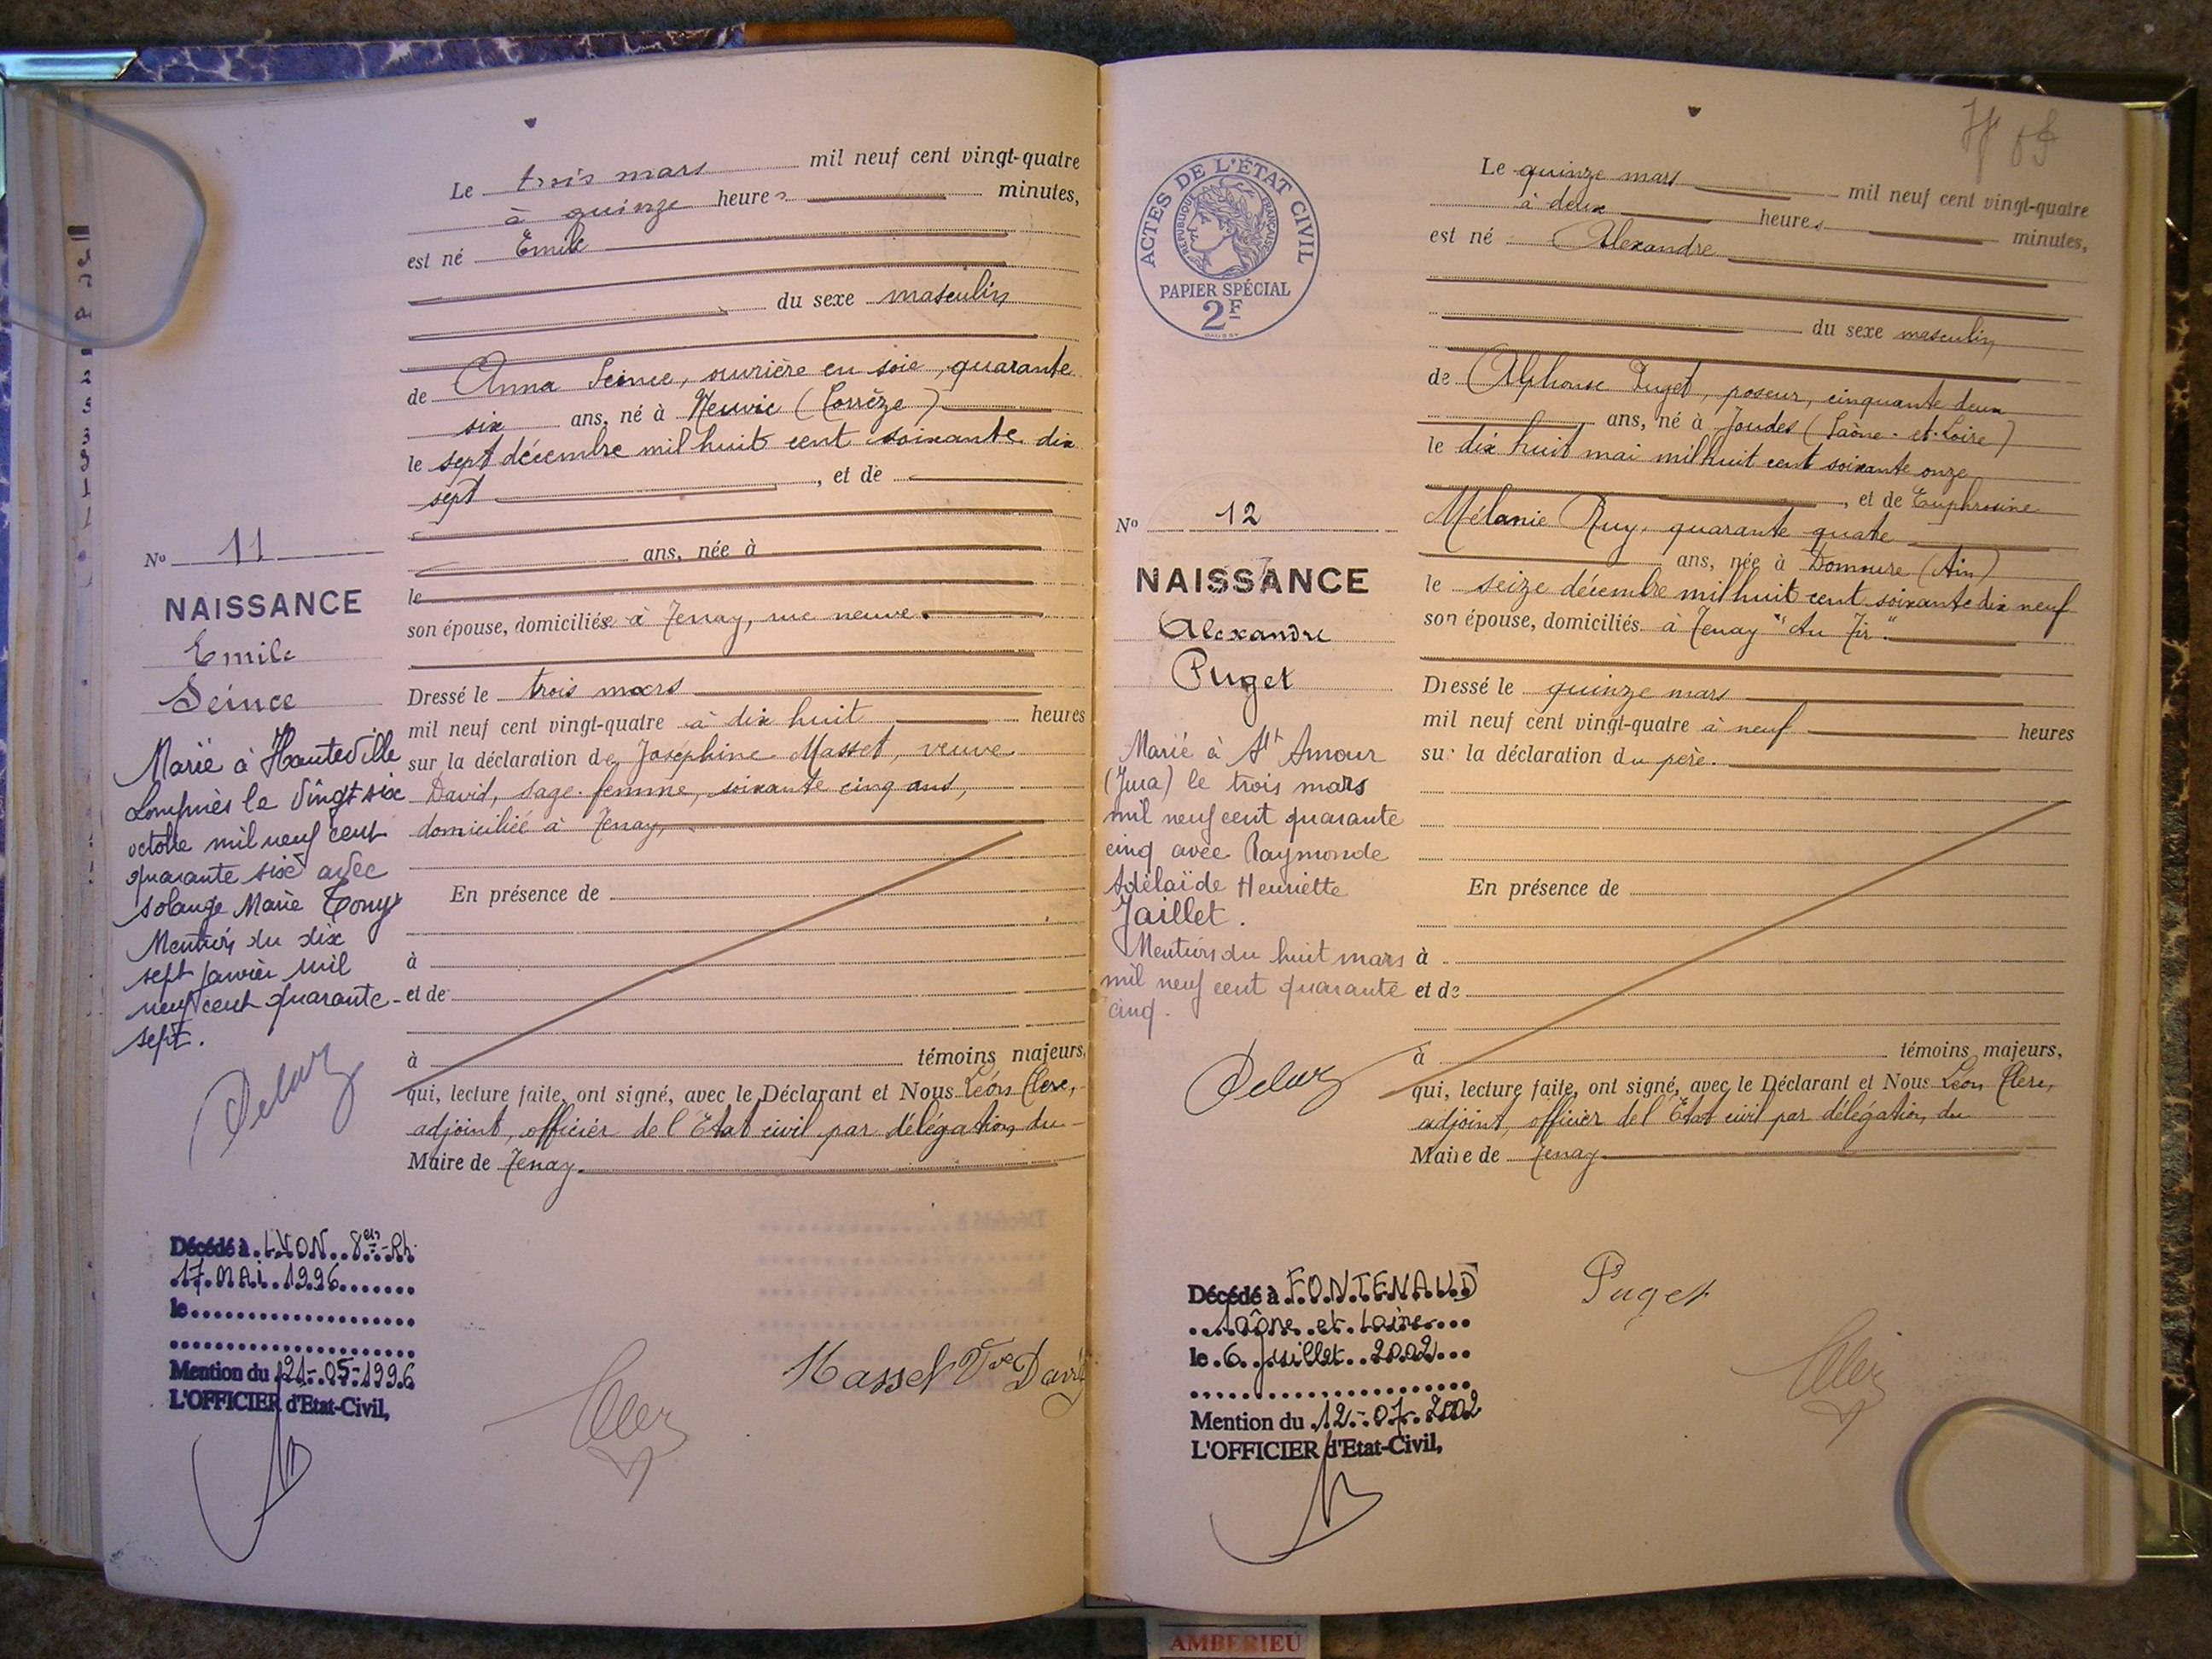 Le trois mars mil neuf cent vingt-quatre
à quinze heures minutes,
est né Emile
du sexe masculin
de Anna Seince, ouvrière en soie, quarante
six ans, né à Neuvic (Corrèze)
le sept décembre mil huit cent soixante dix
sept , et de
ans, née à
le
son épouse, domiciliée à Tenay, rue neuve.
Dressé le trois mars
mil neuf cent vingt-quatre à dix huit heures
sur la déclaration de Joséphine Massot, veuve
David, sage-femme, soixante cinq ans,
domiciliée à Tenay,
En présence de
à
et de
à témoins majeurs,
qui, lecture faite, ont signé, avec le Déclarant et Nous Léon Clerc,
adjoint, officier de l'Etat civil par délégation du
Maire de Tenay.
No 11
NAISSANCE
Emile
Seince
Marié à Hauteville
Lompnès le vingt six
octobre mil neuf cent
quarante six avec
Solange Marie Tony
Mention du dix
sept janvier mil
neuf cent quarante-
sept.
Décédé à LYON 8em-Rh
17 MAI 1996
le
Mention du 21-05-1996
L'OFFICIER d'Etat-Civil,
Massot Vve David
ACTES DE L'ÉTAT CIVIL
RÉPUBLIQUE FRANÇAISE
PAPIER SPÉCIAL
2F
Le quinze mars mil neuf cent vingt-quatre
à deux heures minutes,
est né Alexandre
du sexe masculin
de Alphonse Puget, poseur, cinquante deux
ans, né à Joudes (Saône-et-Loire)
le dix huit mai mil huit cent soixante onze
, et de Euphrosine
Mélanie Ruy, quarante quatre
ans, née à Domsure (Ain)
le seize décembre mil huit cent soixante dix neuf
son épouse, domiciliés à Tenay "Au Tir."
Dressé le quinze mars
mil neuf cent vingt-quatre à neuf heures
sur la déclaration du père.
En présence de
à
et de
à témoins majeurs,
qui, lecture faite, ont signé, avec le Déclarant et Nous Léon Clerc,
adjoint, officier de l'Etat civil par délégation du
Maire de Tenay
No 12
NAISSANCE
Alexandre
Puget
Marié à St Amour
(Jura) le trois mars
mil neuf cent quarante
cinq avec Raymonde
Adélaïde Henriette
Jaillet.
Mention du huit mars
mil neuf cent quarante
cinq.
Décédé à FONTENAUD
Saône et Loire
le 6 juillet 2002
Mention du 12-07-2002
L'OFFICIER d'Etat-Civil,
Puget
AMBERIEU